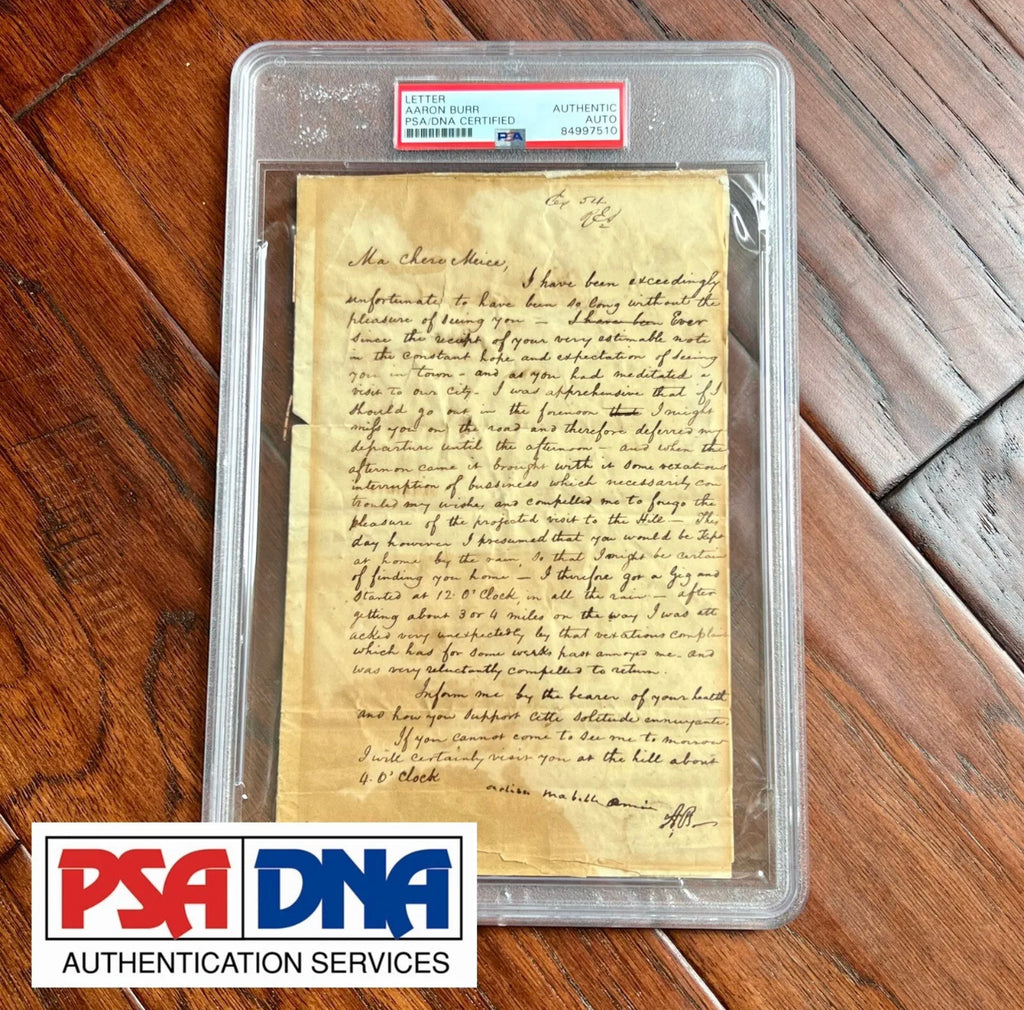 LETTER
AARON BURR
PSA/DNA CERTIFIED
AUTHENTIC
AUTO
84997510
PSA
Ex 54
Ma chere Meice,
I have been exceedingly
unfortunate to have been so long without the
pleasure of seeing you — I have been Ever
since the receipt of your very estimable note
in the constant hope and expectation of seeing
you in town - and as you had meditated a
visit to our city - I was apprehensive that if I
should go out in the forenoon that I might
miss you on the road and therefore deferred my
departure until the afternoon - and when the
afternoon came it brought with it some vexatious
interruption of bussiness which necessarily con
trouled my wishes and compelled me to forego the
pleasure of the projected visit to the Hill — This
day however I presumed that you would be Kept
at home by the rain, so that I might be certain
of finding you home — I therefore got a Gig and
started at 12 O'Clock in all the rain — after
getting about 3 or 4 miles on the way I was att
acked very unexpectedly by that vexatious complain
which has for some weeks past annoyed me - and
was very reluctantly compelled to return.
Inform me by the bearer of your health
and how you support cette solitude ennuyante.
If you cannot come to see me to morrow
I will certainly visit you at the hill about
4. O'Clock
adieu ma belle amie
AB
PSA DNA
AUTHENTICATION SERVICES